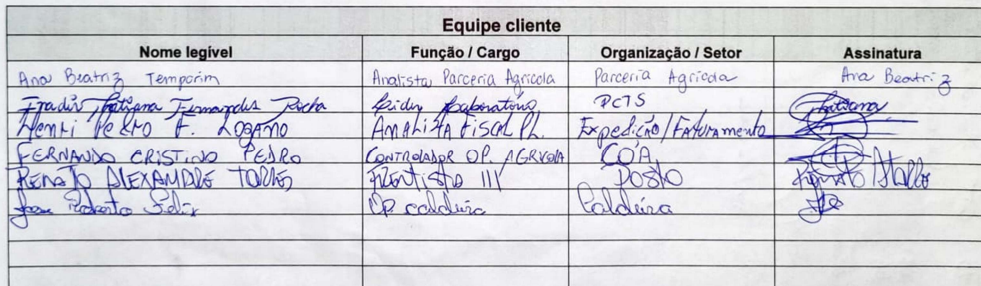 Equipe cliente
Nome legível Função / Cargo Organização / Setor Assinatura
Ana Beatriz Temporim Analista Parceria Agrícola Parceria Agrícola Ana Beatriz
Tatiana Fernandes Rocha Líder Laboratório PCTS Tatiana
Henri Pedro F. Logano Analista Fiscal Pl. Expedição/Faturamento
FERNANDO CRISTINO PEDRO CONTROLADOR OP. AGRICOLA COA
RENATO ALEXANDRE TORRES FRENTISTA III Posto Renato
Jose Roberto Felix Op caldeira Caldeira